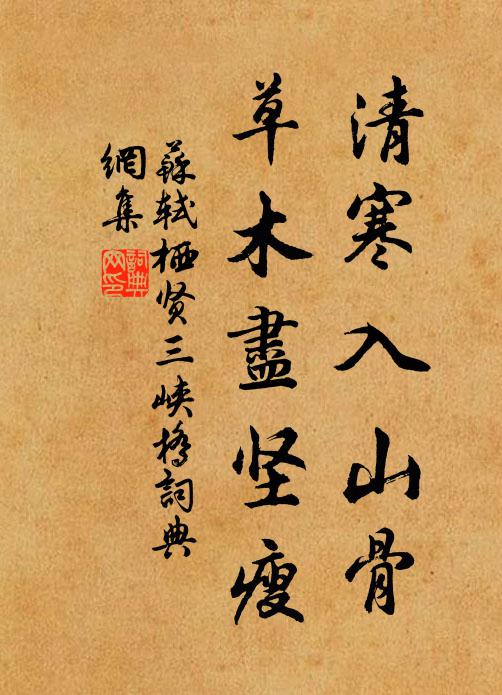 清寒入山骨
草木盡坚瘦
蘇轼栖贤三峡橋詞典
網集
詞典
网印